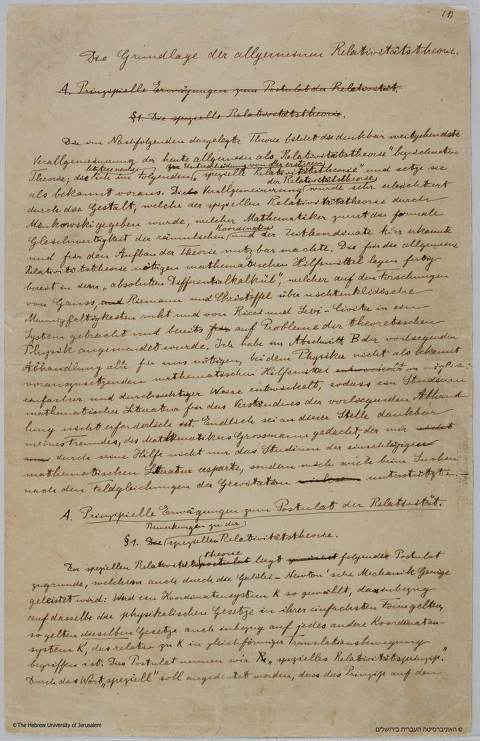 (1)
Die Grundlage der allgemeinen Relativitätstheorie.
A. Prinzipielle Erwägungen zum Postulat der Relativität.
§1. Die spezielle Relativitätstheorie.
Die im Nachfolgenden dargelegte Theorie bildet die denkbar weitgehendste
Verallgemeinerung der heute allgemein als „Relativitätstheorie" bezeichneten
Theorie; die im folgenden „spezielle Relativitätstheorie" und setze sie
zur Unterscheidung von der ersteren
als bekannt voraus. Die Verallgemeinerung wurde sehr erleichtert
der Relativitätstheorie
durch die Gestalt, welche der speziellen Relativitätstheorie durch
Minkowski gegeben wurde, welcher Mathematiker zuerst die formale
Gleichwertigkeit der räumlichen und der Zeitkoordinate klar erkannte
Koordinaten
und für den Aufbau der Theorie nutzbar machte. Die für die allgemeine
Relativitätstheorie nötigen mathematischen Hilfsmittel lagen fertig
bereit in dem „absoluten Differentialkalkül", welcher auf den Forschungen
von Gauss, und Riemann und Christoffel über nichteuklidische
Mannigfaltigkeiten ruht und von Ricci und Levi-Civita in ein
System gebracht und bereits auf Probleme der theoretischen
Physik angewendet wurde. Ich habe im Abschnitt B der vorliegenden
Abhandlung alle für uns nötigen, bei dem Physiker nicht als bekannt
vorauszusetzenden mathematischen Hilfsmittel in möglichst
einfacher und durchsichtiger Weise entwickelt, sodass ein Studium
mathematischer Literatur für das Verständnis der vorliegenden Abhand-
lung nicht erforderlich ist. Endlich sei an dieser Stelle dankbar
meines Freundes, des Mathematikers Grossmann gedacht, der mir
durch seine Hilfe nicht nur das Studium der einschlägigen
mathematischen Literatur ersparte, sondern mich auch beim Suchen
nach den Feldgleichungen der Gravitation unterstützte.
A. Prinzipielle Erwägungen zum Postulat der Relativität.
Bemerkungen zu der
§1. Die speziellen Relativitätstheorie.
Der speziellen Relativitätstheorie liegt folgendes Postulat
zugrunde, welchem auch durch die Galilei-Newton'sche Mechanik Genüge
geleistet wird: Wird ein Koordinatensystem K so gewählt, dass inbezug
auf dasselbe die physikalischen Gesetze in ihrer einfachsten Form gelten,
so gelten dieselben Gesetze auch inbezug auf jedes andere Koordinaten-
system K', das relativ zu K in gleichförmiger Translationsbewegung
begriffen ist. Dies Postulat nennen wir „spezielles Relativitätsprinzip".
Durch das Wort „speziell" soll angedeutet werden, dass das Prinzip auf den
©The Hebrew University of Jerusalem
האוניברסיטה העברית בירושלים ©